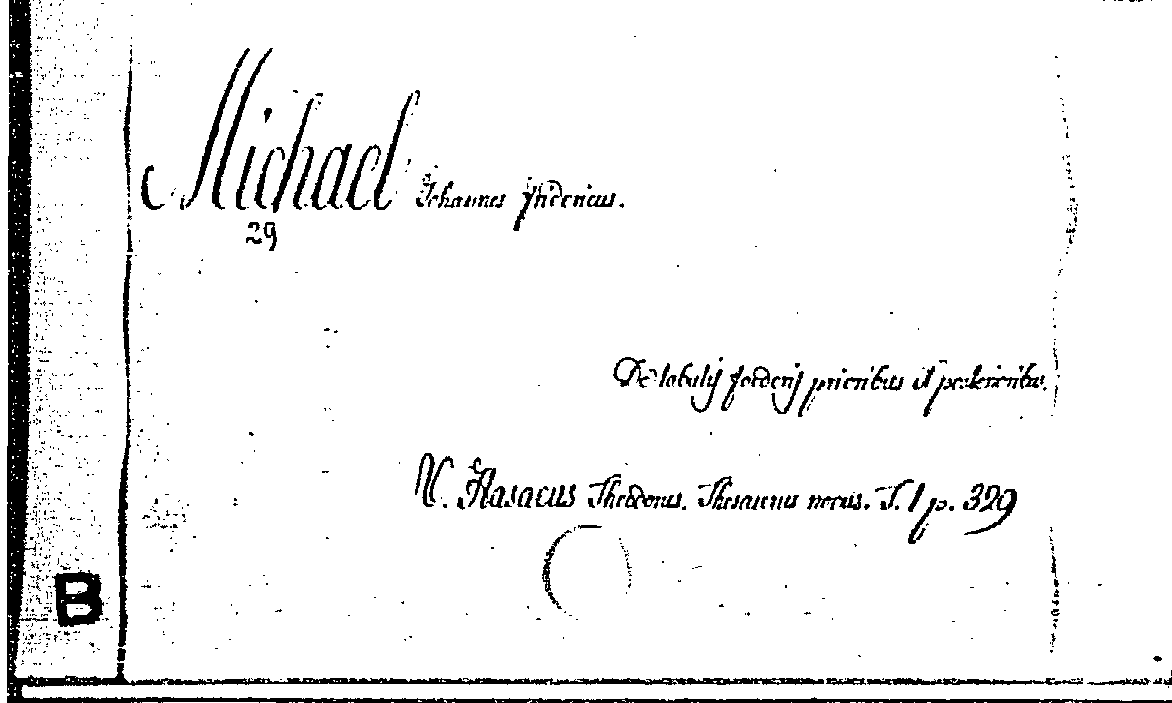 Michael Johannes fridericus.
29
De tabulis foederis prioribus et posterioribus.
V. Hasaeus Theodorus. Thesaurus novus. T. 1 p. 329
B